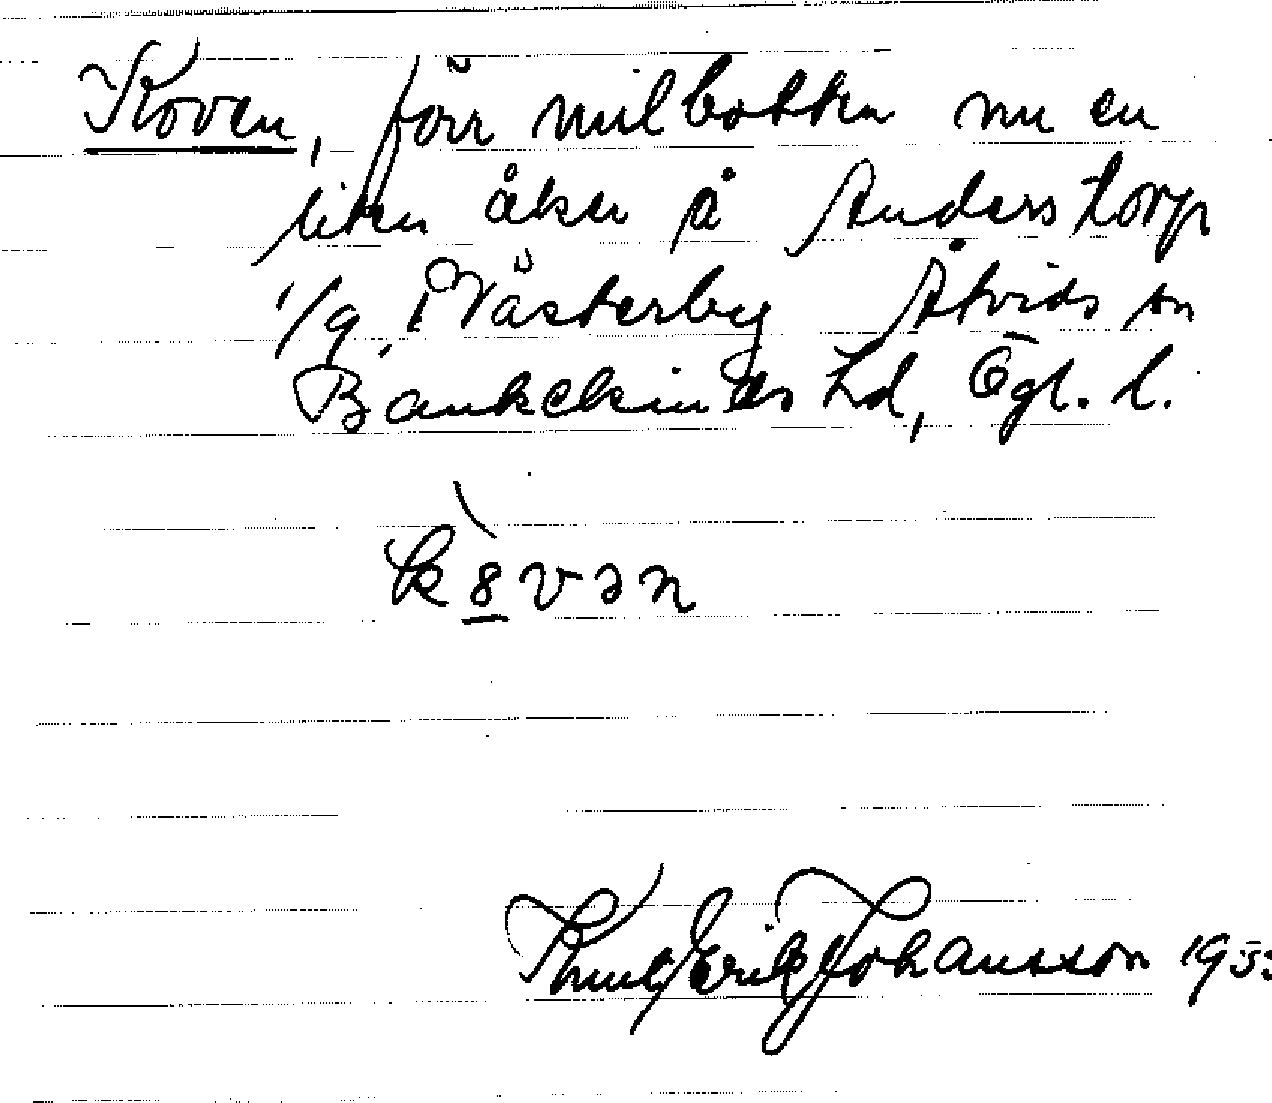 Koven, förr milbotten nu en
liten åker å Anderstorp
1/9, i Västerby Åtvids sn
Bankekinds hd, Ögl. l.
k8vən
Knut Erik Johansson 1933